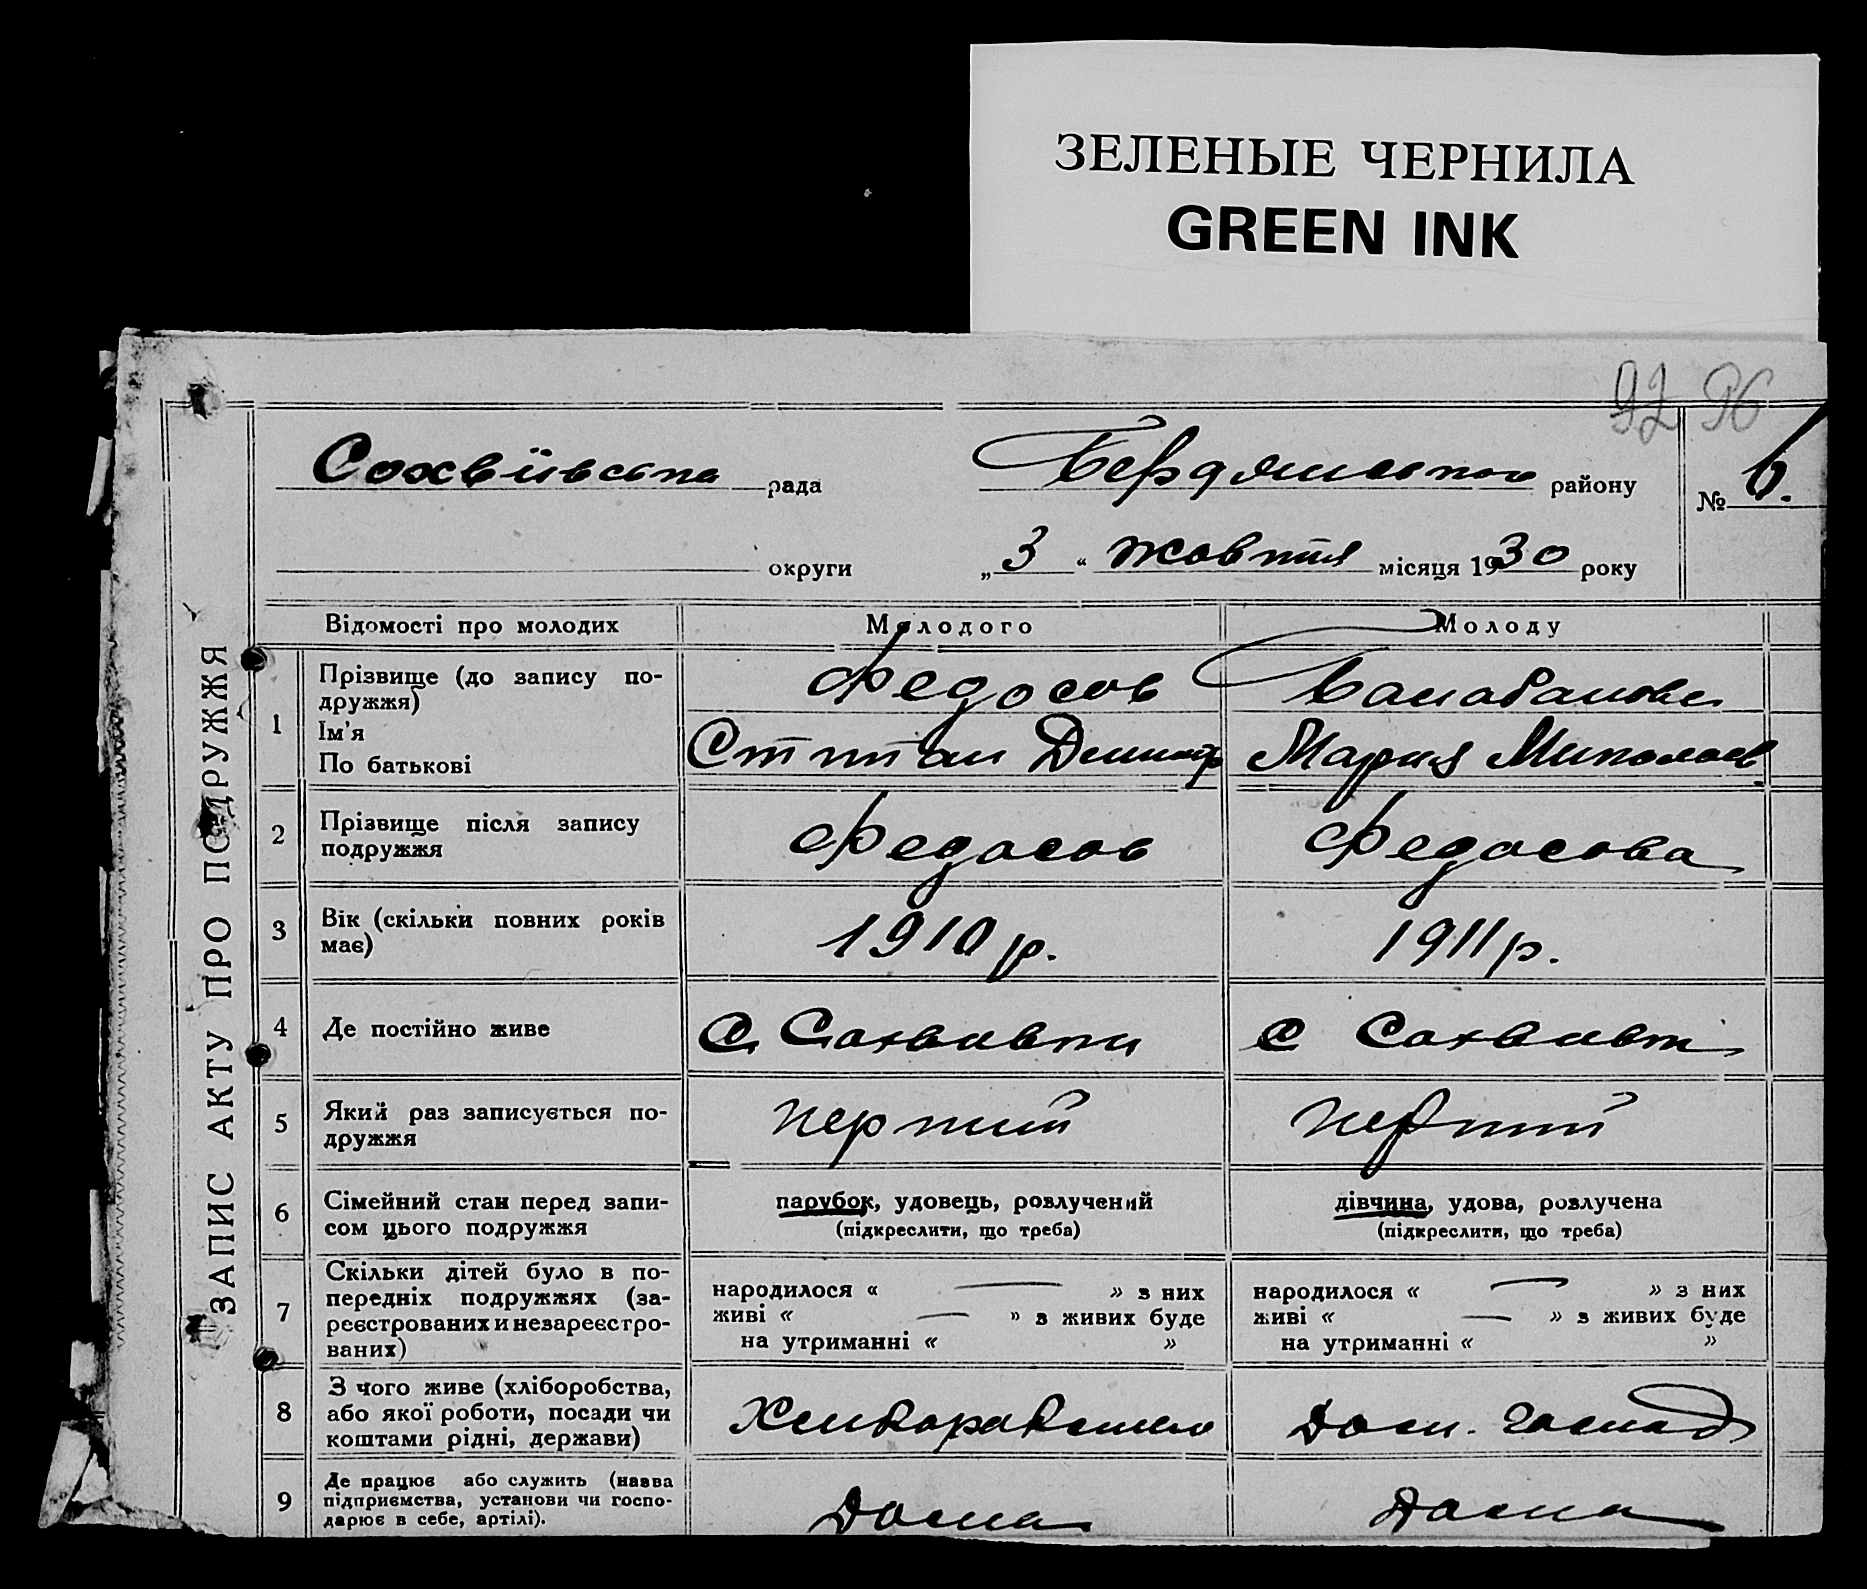 ЗЕЛЕНЫЕ ЧЕРНИЛА
GREEN INK
92 96
Сохвіївська рада Бердянського району № 6.
округи „3“ жовтня місяця 1930 року
ЗАПИС АКТУ ПРО ПОДРУЖЖЯ
Відомості про молодих Молодого Молоду
1 Прізвище (до запису по-
дружжя) Федосов Балабанова
Ім'я
По батькові Степан Дмитр Мария Миколаев
2 Прізвище після запису
подружжя Федосов Федосова
3 Вік (скільки повних років
має) 1910 р. 1911 р.
4 Де постійно живе С Сохвивки С Сохвивки
5 Який раз записується по-
дружжя перший перший
6 Сімейний стан перед запи-
сом цього подружжя парубок, удовець, розлучений дівчина, удова, розлучена
(підкреслити, що треба) (підкреслити, що треба)
7 Скільки дітей було в по-
передніх подружжях (за-
реєстрованих и незареєстро-
ваних)
народилося « — » з них народилося « — » з них
живі « — » з живих буде живі « — » з живих буде
на утриманні « » на утриманні « »
8 З чого живе (хліборобства,
або якої роботи, посади чи
коштами рідні, держави) Хлиборобство Дом. господ
9 Де працює або служить (назва
підприємства, установи чи госпо-
дарює в себе, артілі). Дома Дома